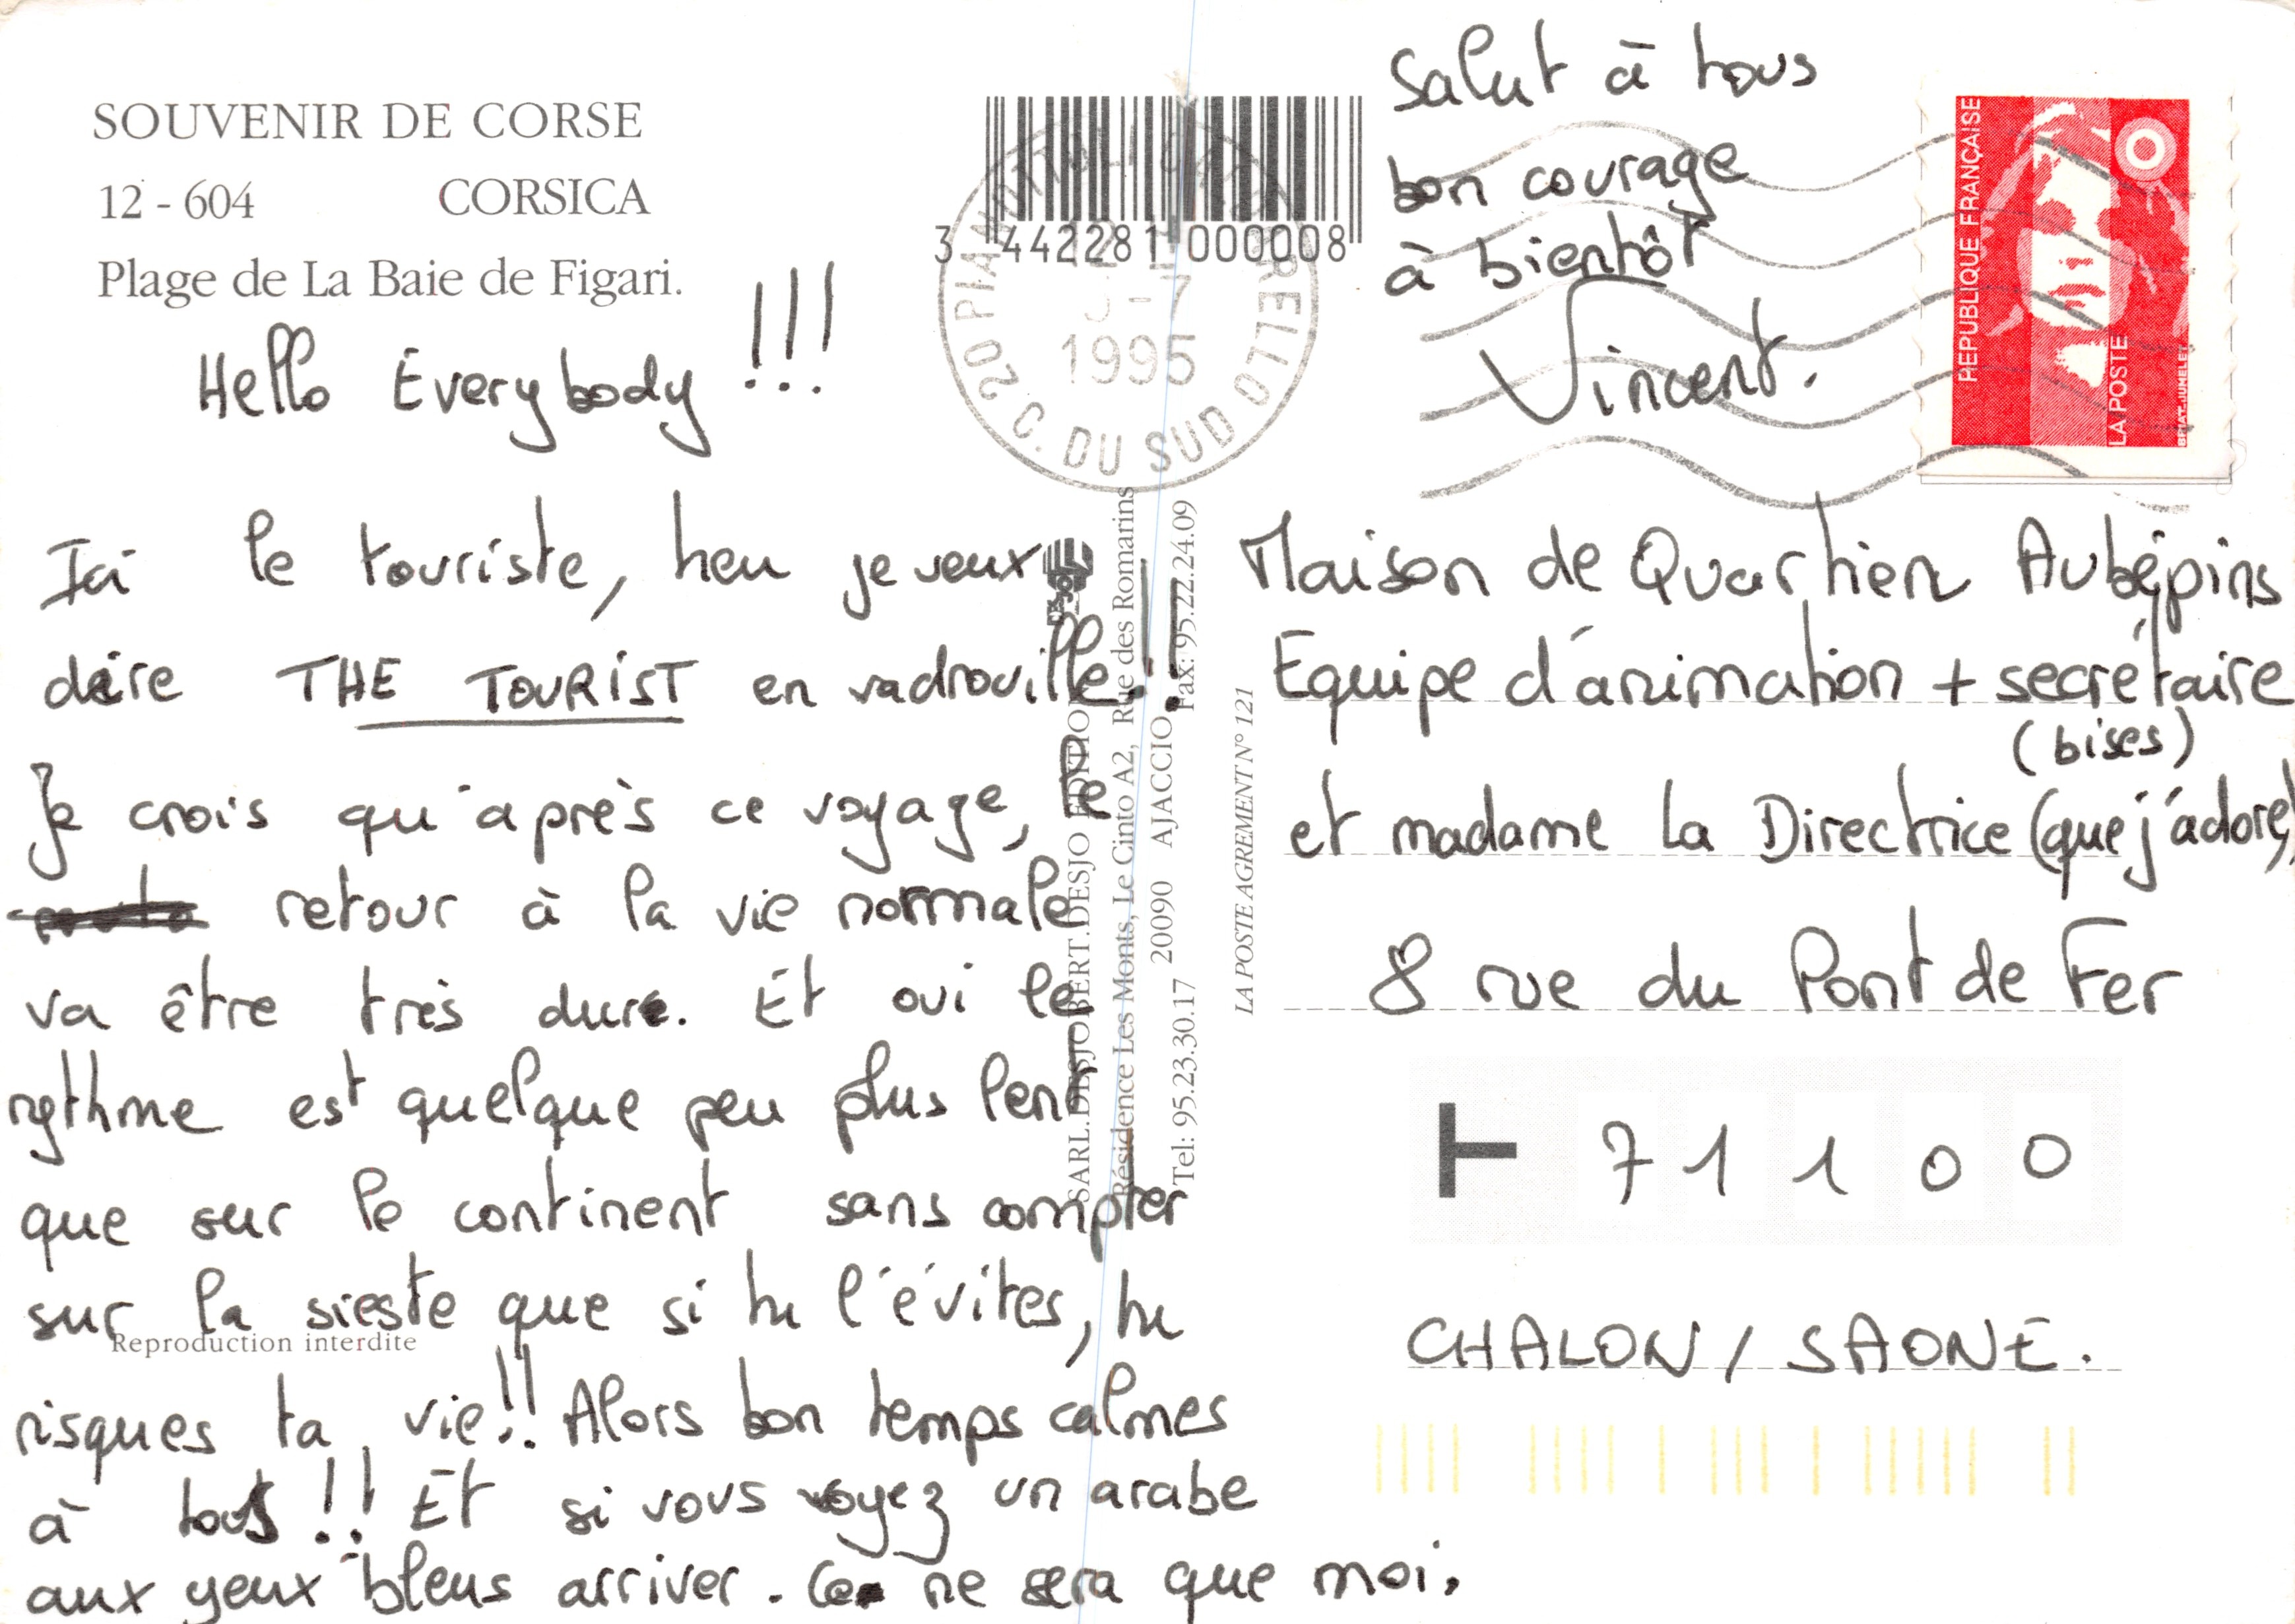 SOUVENIR DE CORSE
12 - 604 CORSICA
Plage de La Baie de Figari.
Hello Everybody !!!
Ici le touriste, heu je veux
dire THE TOURIST en vadrouille!!
Je crois qu'après ce voyage, le
retour à la vie normale
va être très dure. Et oui le
rythme est quelque peu plus lent
que sur le continent sans compter
sur la sieste que si tu l'évites, tu
risques ta vie!! Alors bon temps calmes
à tous !! Et si vous voyez un arabe
aux yeux bleus arriver. Ce ne sera que moi.
Reproduction interdite
3 442281 000008
20 PIANOTTOLI CALDARELLO
-7
1995
C. DU SUD
SARL.DESJOBERT.DESJO EDITION
Résidence Les Monts, Le Cinto A2, Rue des Romarins
20090 AJACCIO
Tel: 95.23.30.17 Fax: 95.22.24.09
LA POSTE AGREMENT N° 121
Salut à tous
bon courage
à bientôt
Vincent.
REPUBLIQUE FRANÇAISE
LA POSTE
BRIAT-JUMELET
Maison de Quartier Aubépins
Equipe d'animation + secrétaire
(bises)
et madame la Directrice (que j'adore)
8 rue du Pont de Fer
T 71100
CHALON / SAONE.